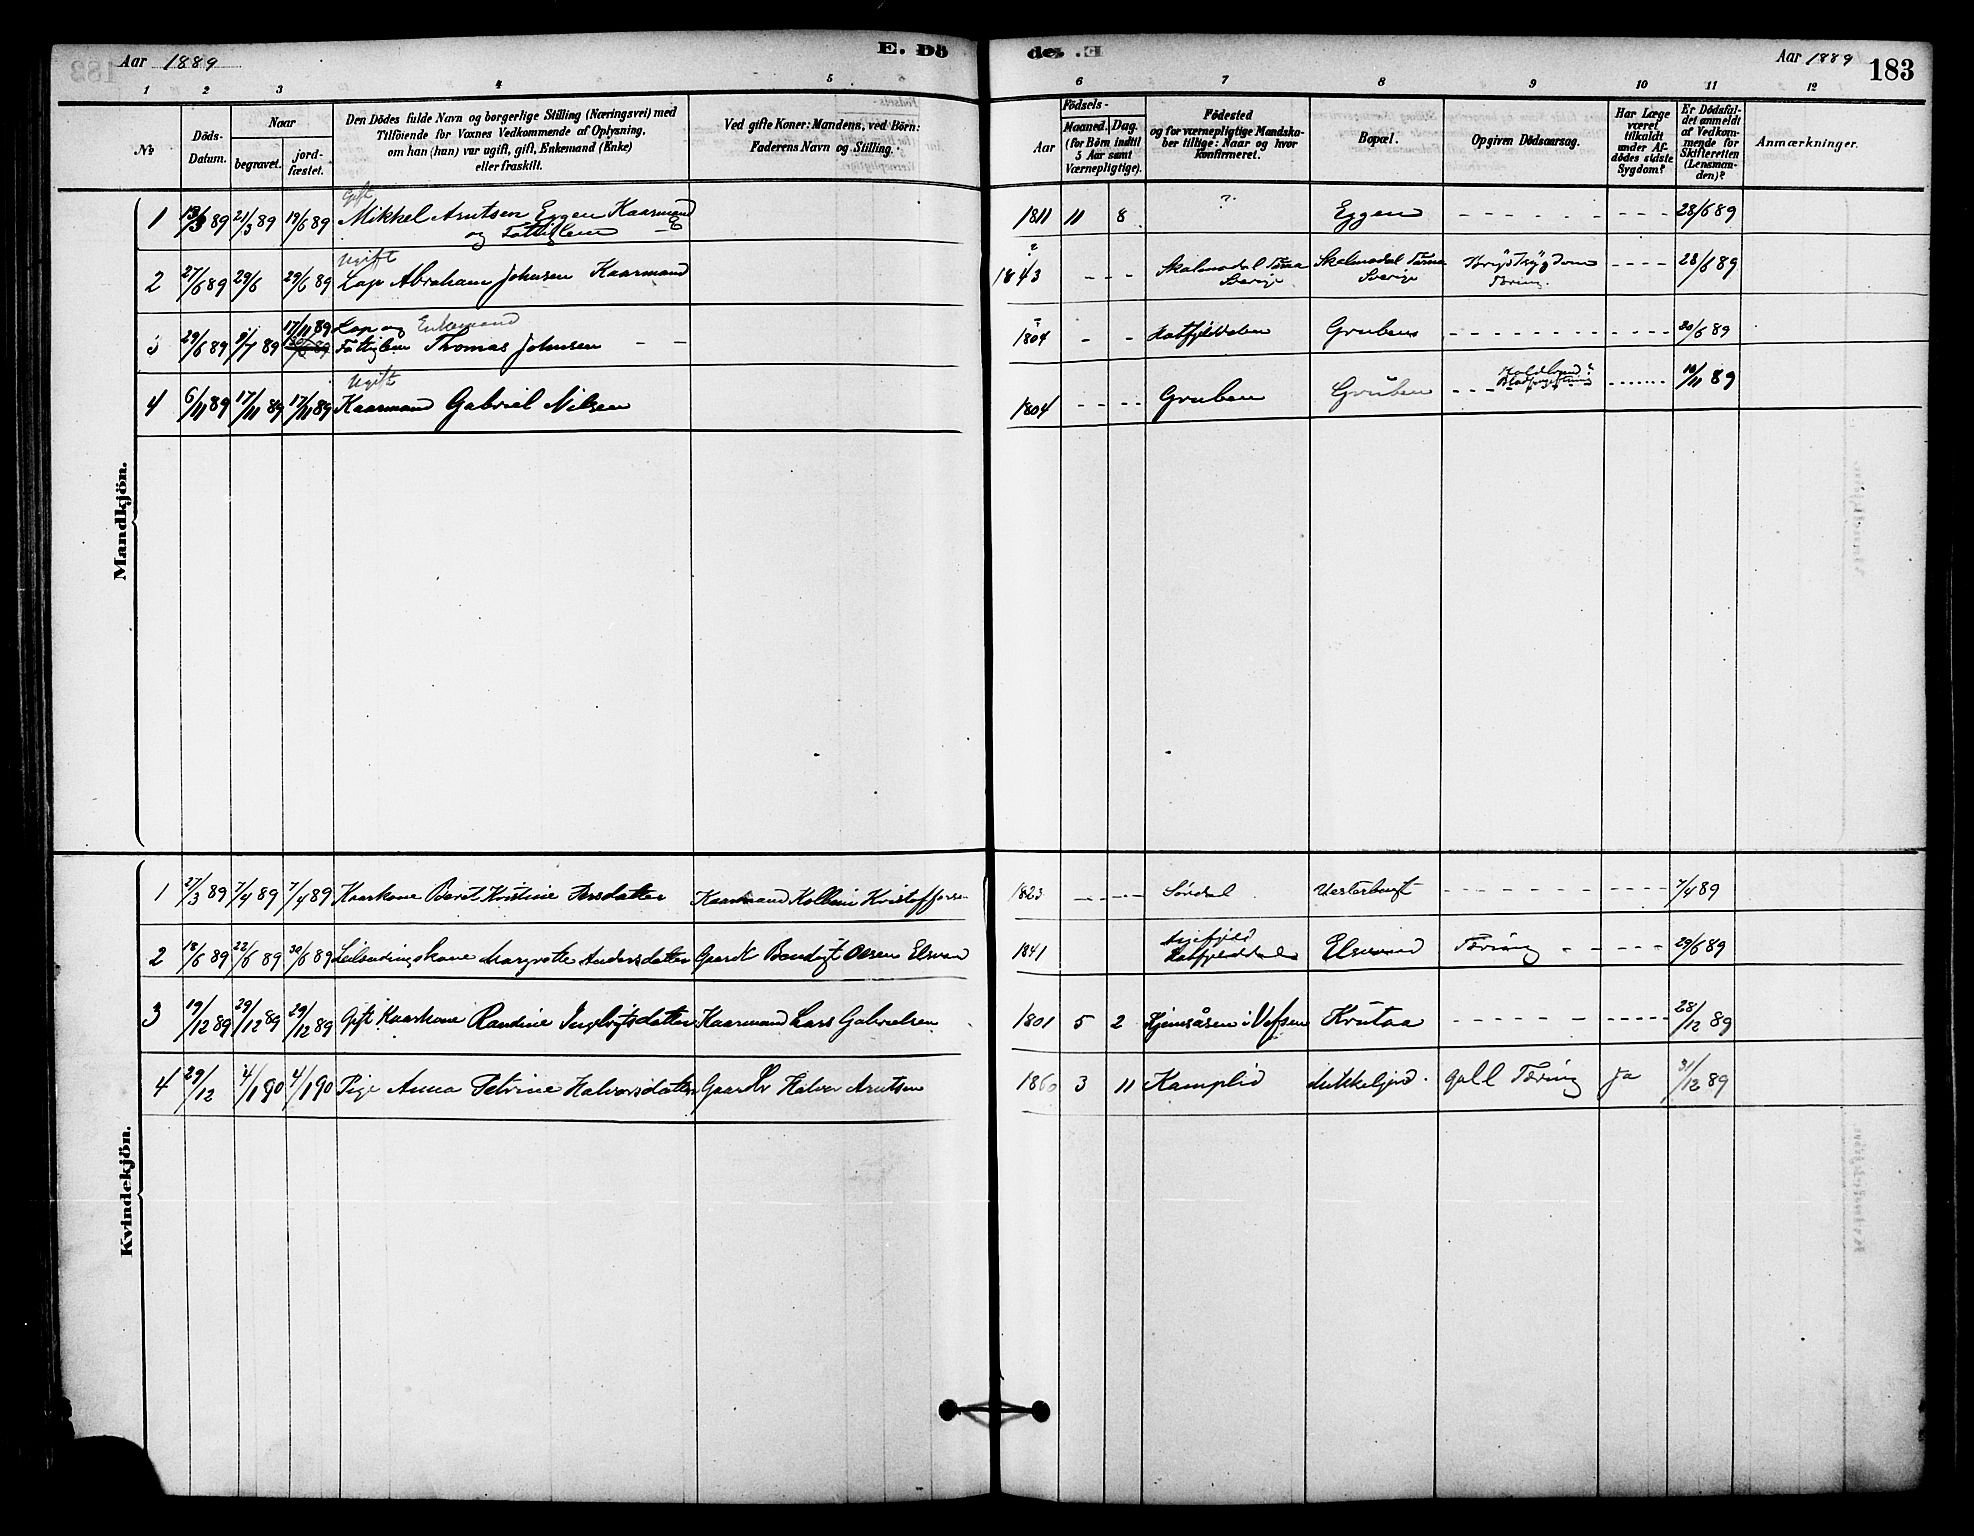 Aar 1889
E. Dö
de. E
Aar 1889
183
1 2 3 4 5 6 7 8 9 10 11 12
№
Döds-Datum.
Naar
begravet.
jord-fæstet.
Den Dödes fulde Navn og borgerlige Stilling (Næringsvei) med
Tilföiende for Voxnes Vedkommende af Oplysning,
om han (hun) var ugift, gift, Enkemand (Enke)
eller fraskilt.
Ved gifte Koner: Mandens, ved Börn:
Faderens Navn og Stilling.
Födsels-
Aar
Maaned. Dag.
(for Börn indtil
5 Aar samt
Værnepligtige).
Födested
og for værnepligtige Mandska-
ber tillige: Naar og hvor
konfirmeret.
Bopæl.
Opgiven Dödsaarsag.
Har Læge
været
tilkaldt
under Af-
dödes sidste
Sygdom?
Er Dödsfal-
det anmeldt
af Vedkom-
mende for
Skifteretten
(Lensman-
den)?
Anmærkninger.
Mandkjön.
Gift
1 13/3 89 21/3 89 19/6 89 Mikkel Arntsen Eggen Kaarmand 1811 11 8 ? Eggen - - - - - - 28/6 89
og Fattiglem
Ugift
2 27/6 89 29/6 29/6 89 Lap Abraham Johnsen Kaarmand ? 1843 - - Skalmodal Tærna Sverige Skalmodal Tærna Sverige Brystsygdom Tæring. - - - - 28/6 89
17/11 89 Lap og Enkemand
3 29/6 89 9/7 89 Fattiglem Thomas Johnsen - - ? 1804 - - Hatfjelddalen Gruben - - - - - - 30/6 89
Ugift
4 6/11 89 17/11 89 17/11 89 Kaarmand Gabriel Nilsen 1804 - - - - Gruben Gruben - - - - - - 10/11 89
Kvindekjön.
1 27/3 89 7/4 89 7/4 89 Kaarkone Beret Kristine Persdatter Kaarmand Kolbein Kristoffersen 1823 - - - - - - - - 7/4 89
2 18/6 89 22/6 89 30/6 89 Leilendingskone Margrethe Andersdatter Gaardbr Bendigt Olsen 1841 Hatfjelddal Tæring - - - - 29/6 89
3 19/12 89 29/12 89 29/12 89 Gift Kaarkone Randine Ingebrigtsdatter Kaarmand Lars Gabrielsen 1801 5 2 Hjemsåsen i Vefsen Krutaa - - - - - - 28/12 89
4 29/12 4/1 90 4/1 90 Pige Anna Petrine Halvorsdatter Gaardbr Halvor Arntsen 1860 3 11 Kamplid Mikkeljord. gall Tæring ja 31/12 89